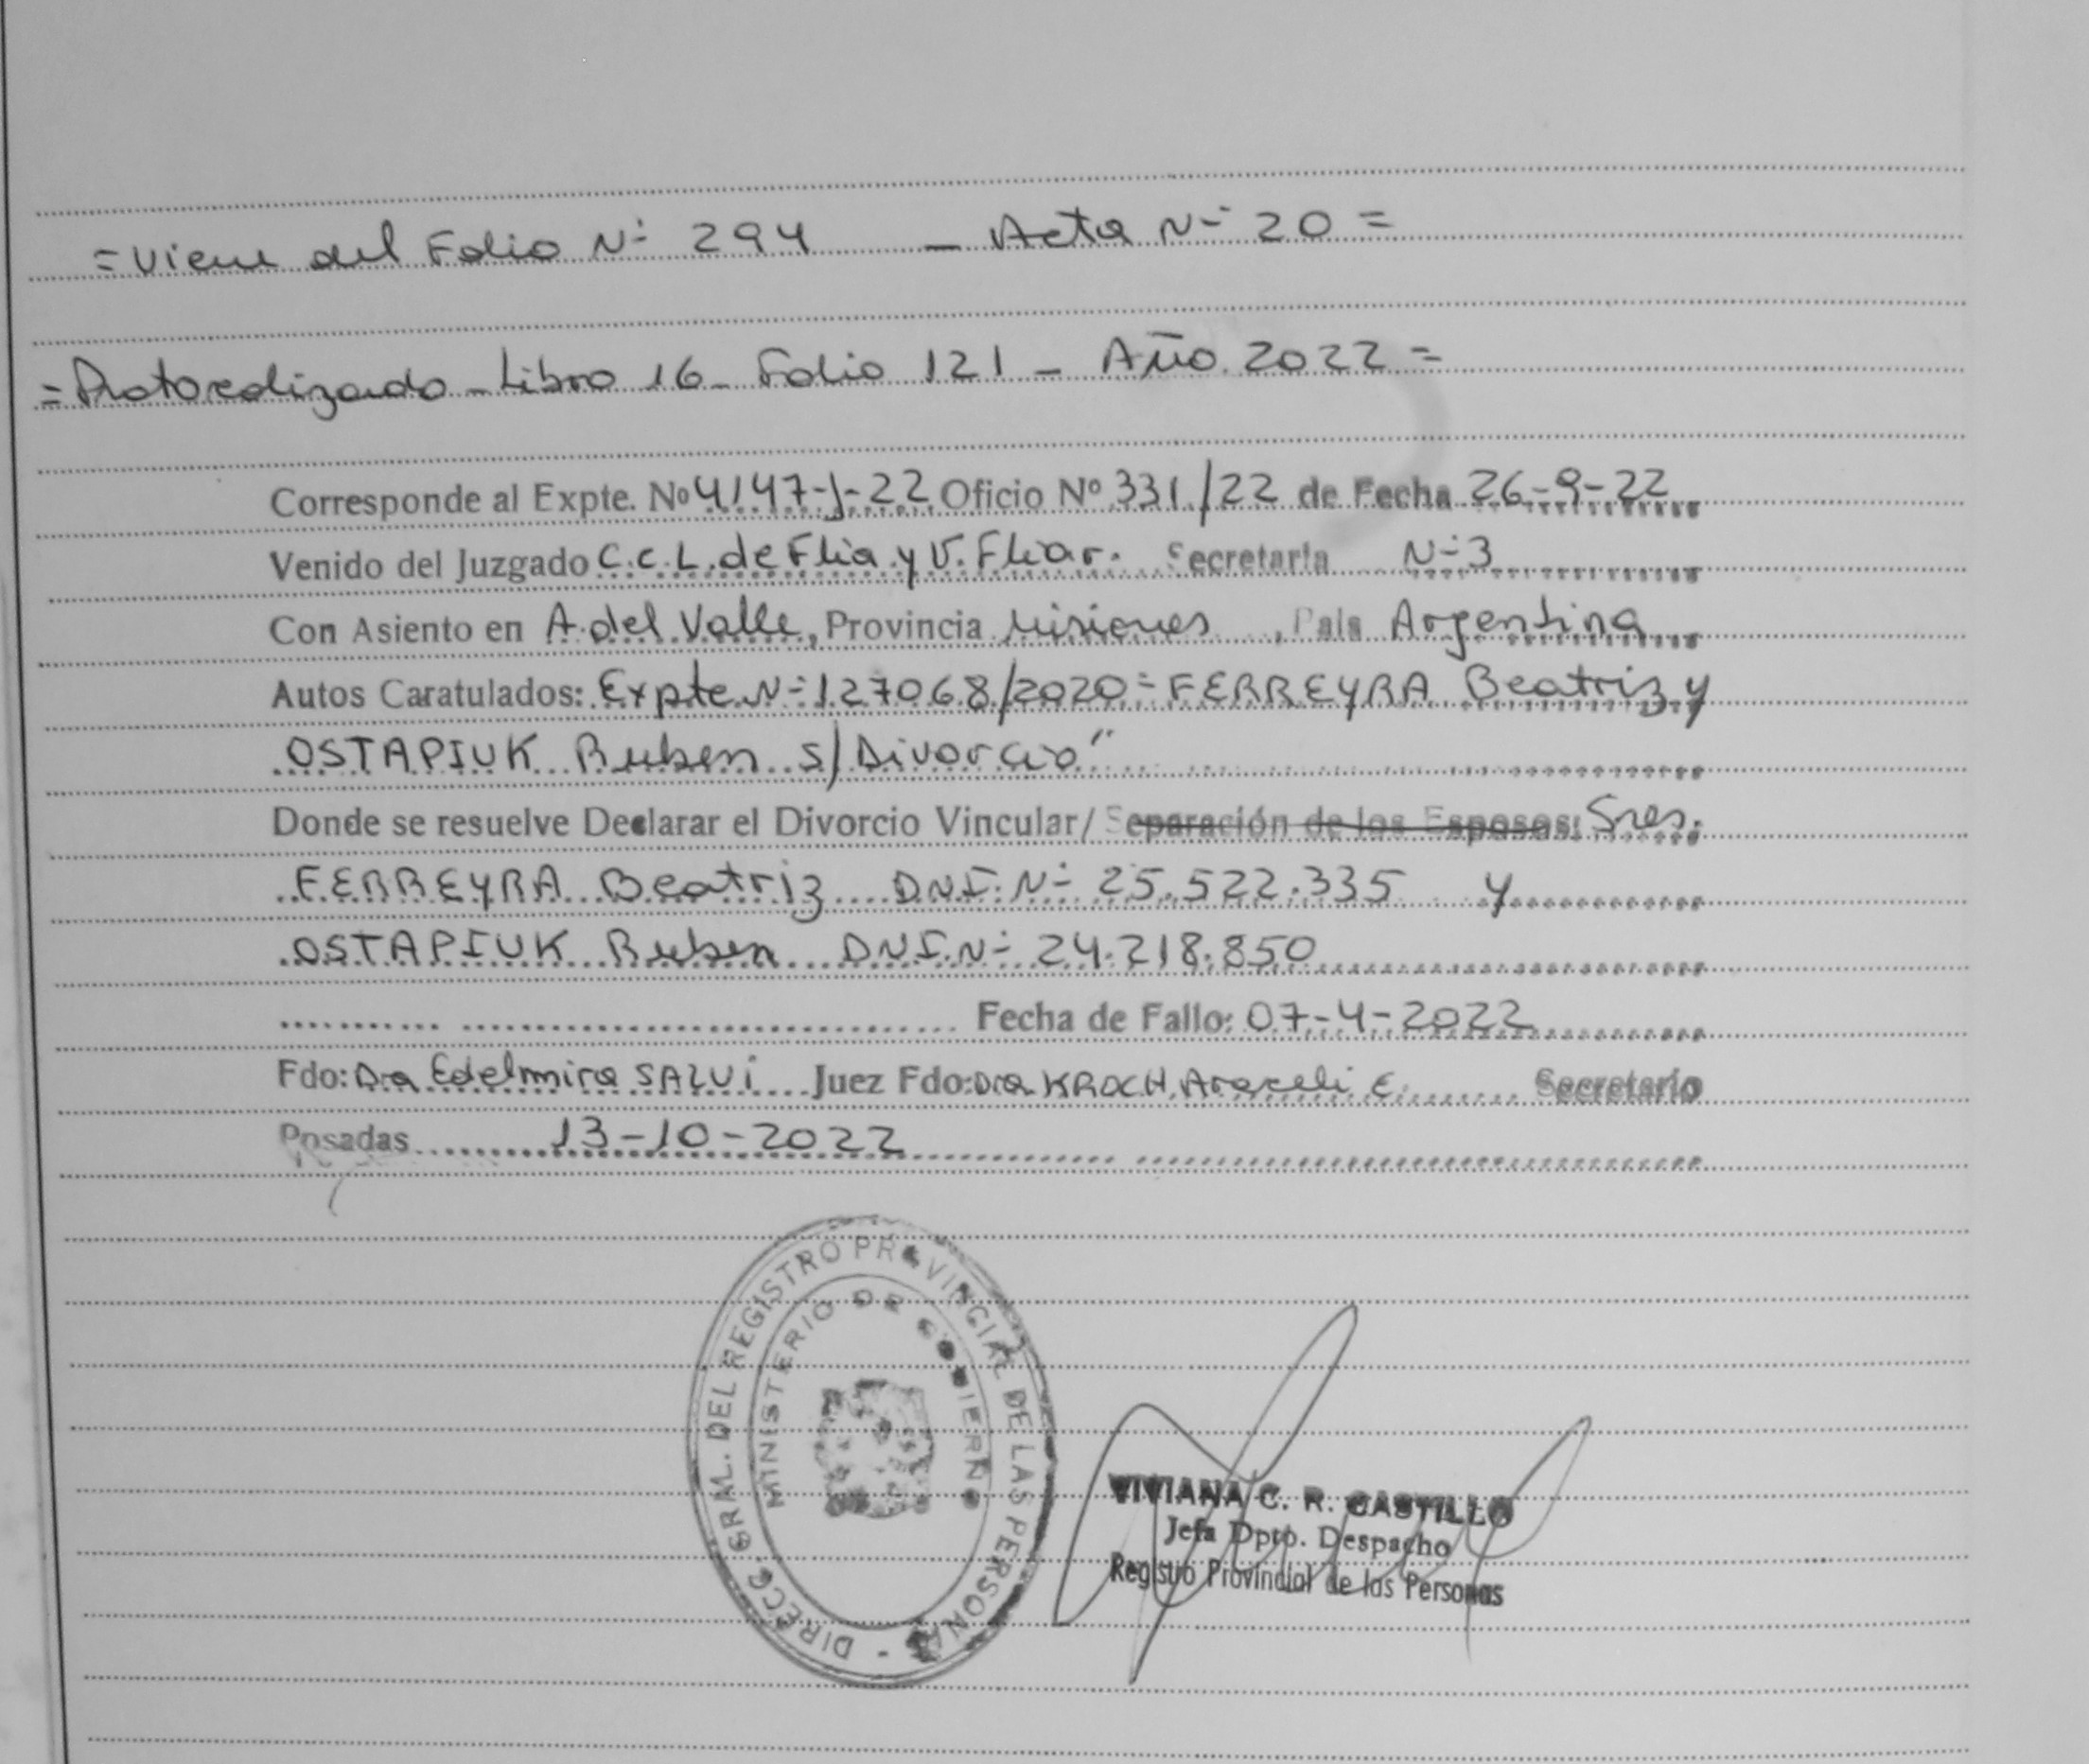 = Viene del Folio Nº 294 - Acta Nº 20 =
= Protocolizado - Libro 16 - Folio 121 - Año 2022 =
Corresponde al Expte. Nº 4147-J-22 Oficio Nº 331/22 de Fecha 26-9-22
Venido del Juzgado C.C.L. de Flia y V. Fliar. Secretaría Nº 3
Con Asiento en A. del Valle, Provincia Misiones, País Argentina
Autos Caratulados: Expte Nº 127068/2020 = FERREYRA Beatriz y
OSTAPIUK Ruben s/Divorcio"
Donde se resuelve Declarar el Divorcio Vincular/ Separación de los Esposos: Sres.
FERREYRA Beatriz D.N.I. Nº 25.522.335 y
OSTAPIUK Ruben D.N.I. Nº 24.218.850
Fecha de Fallo: 07-4-2022
Fdo: Dra Edelmira SALVI Juez Fdo: Dra KROCH, Araceli E. Secretario
Posadas 13-10-2022
DIRECC. GRAL. DEL REGISTRO PROVINCIAL DE LAS PERSONAS -
MINISTERIO DE GOBIERNO
VIVIANA C. R. CASTILLO
Jefa Dpto. Despacho
Registro Provincial de las Personas